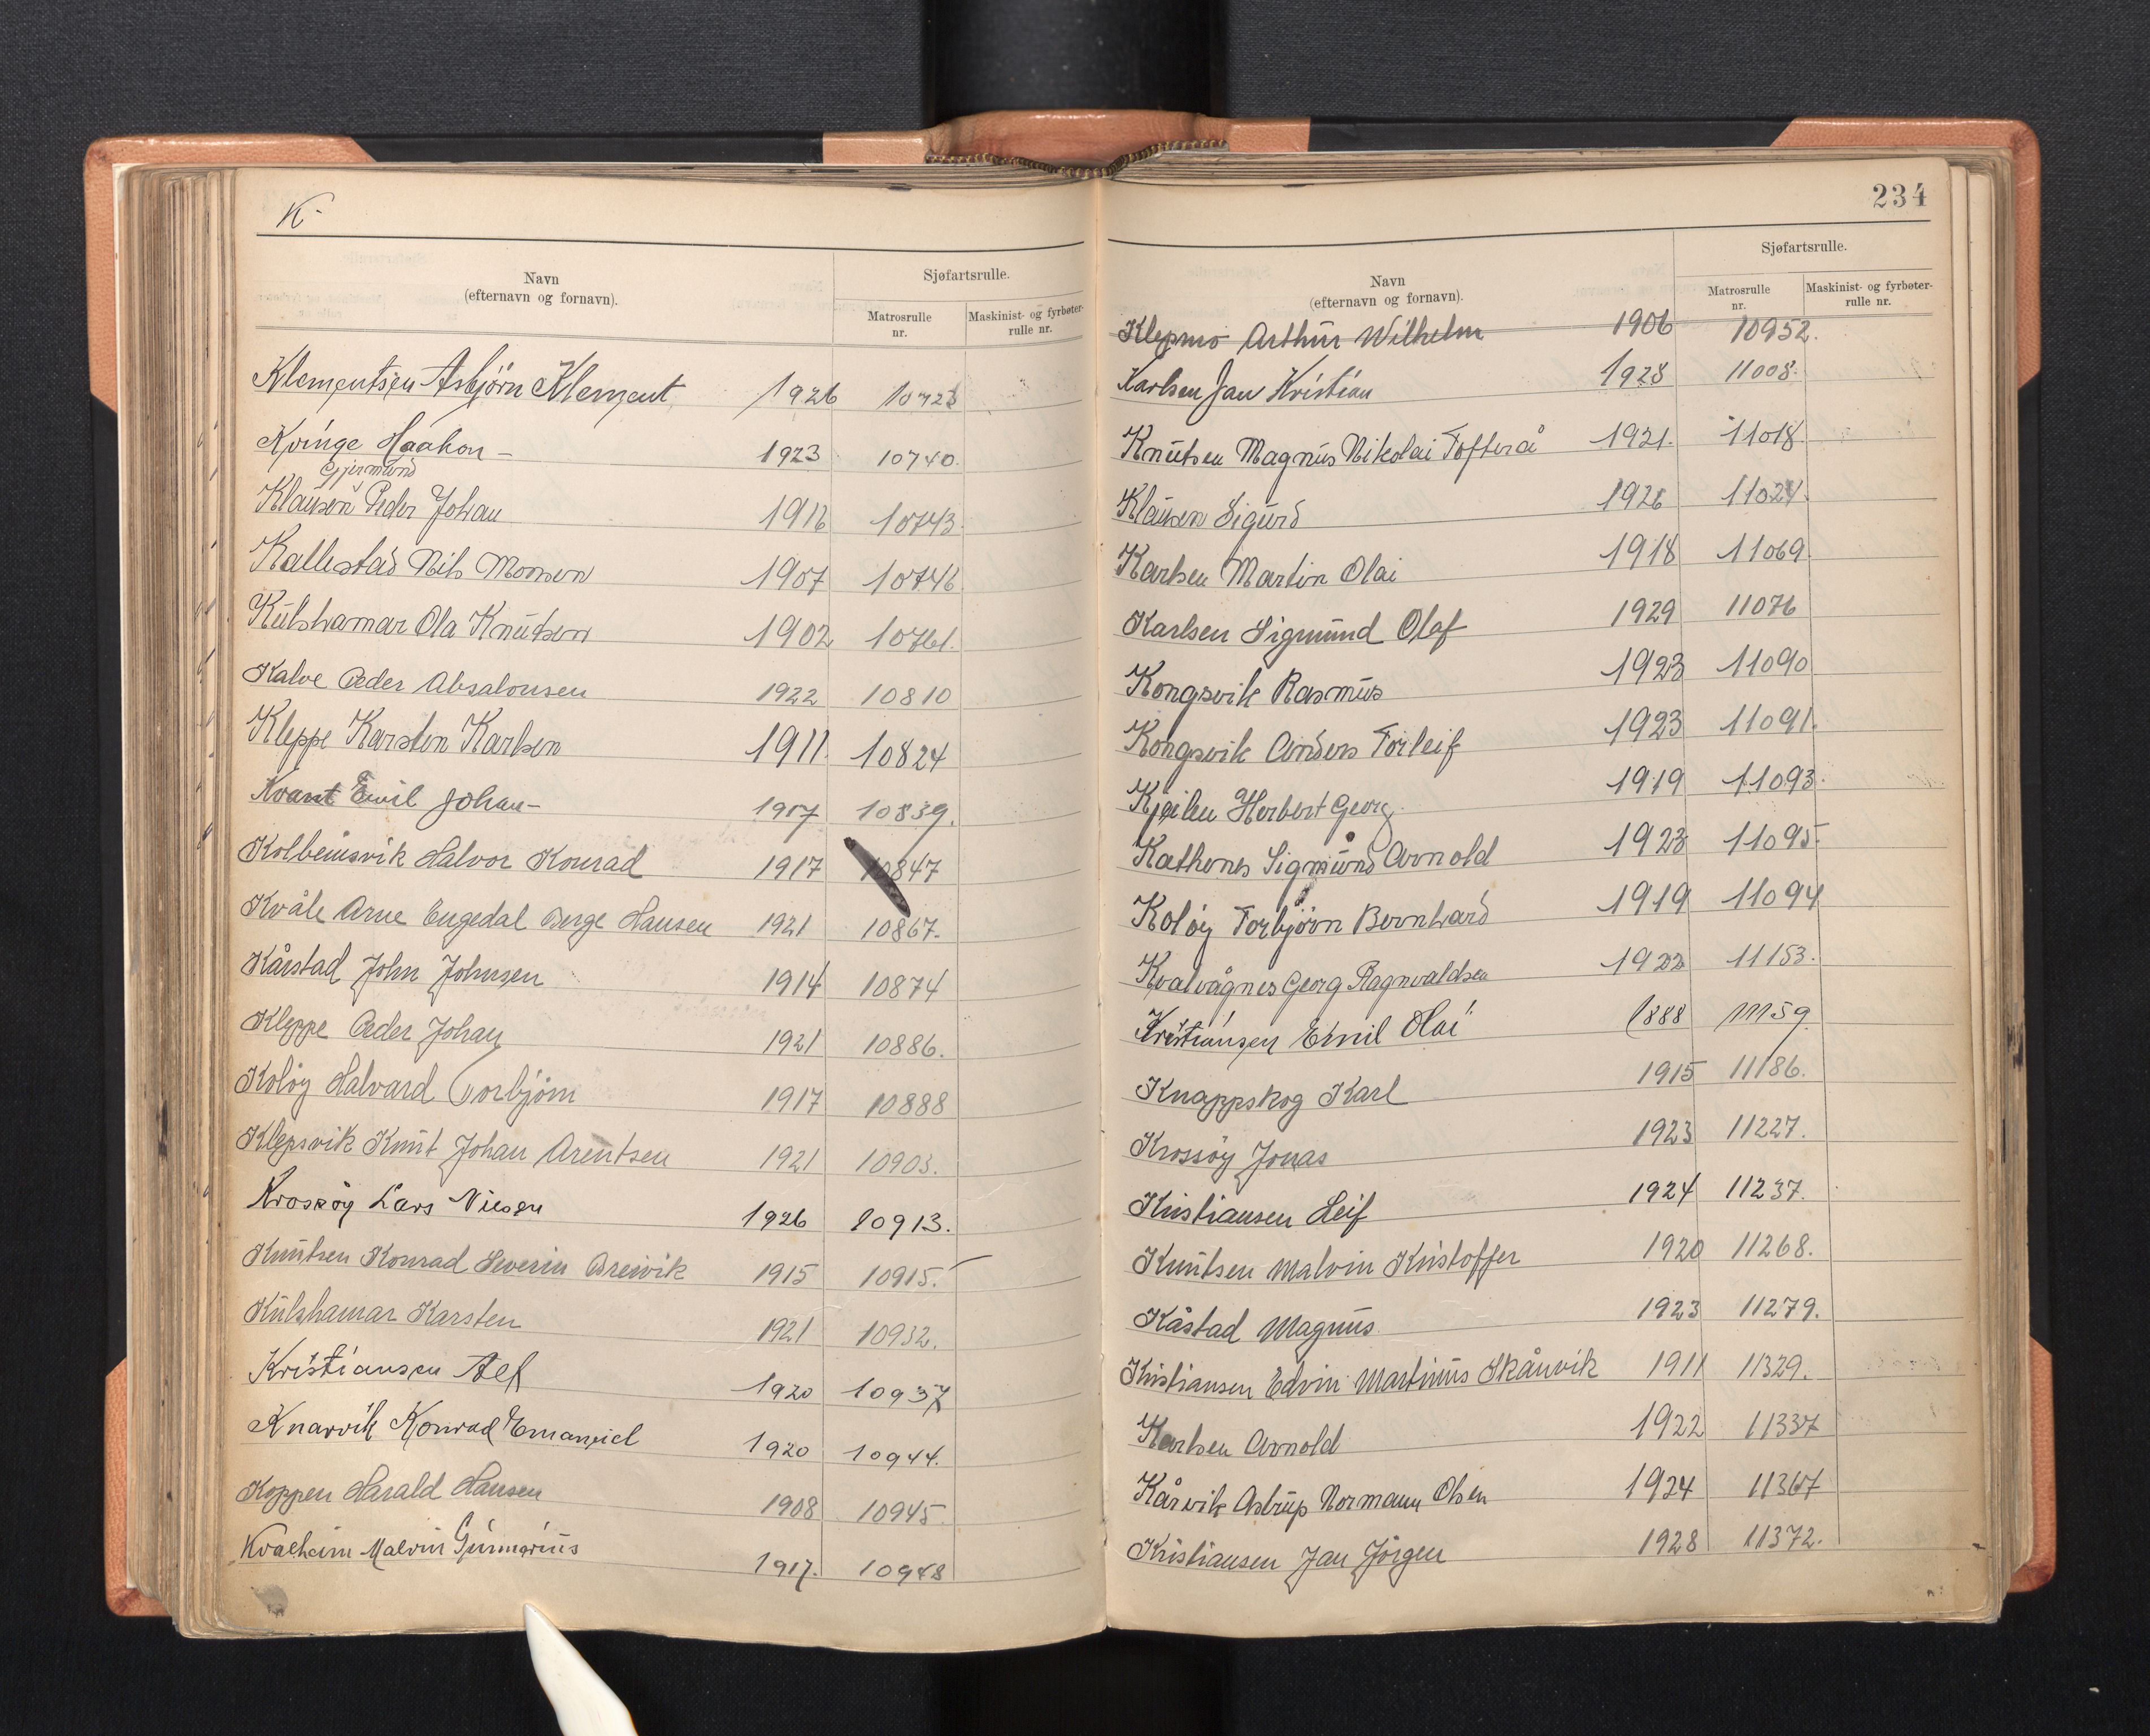 K-
Navn
(efternavn og fornavn).
Sjøfartsrulle.
Matrosrulle
nr.
Maskinist- og fyrbøter-
rulle nr.
Klementsen Asbjørn Klement 1926 10723
Kvinge Haakon - 1923 10740.
Gjermund
Klausen Peder Johan 1912 10743.
Kallestad Nils Monsen 1907 10746
Kulshamar Ola Knutsen 1902 10761.
Kalve Peder Absalonsen 1922 10810
Kleppe Karsten Karlsen 1911. 10824
Kvant Emil Johan- 1907 10839.
Kolbeinsvik Halvor Konrad 1917 10847
Kvåle Arne Engedal Berge Hansen 1921 10867.
Kårstad John Johnsen 1914 10874
Kleppe Peder Johan 1921 10886.
Koløy Halvard Torbjørn 1917 10888
Klepsvik Knut Johan Arentsen 1921 10903.
Krossøy Lars Nilsen 1926 10913.
Knutsen Konrad Severin Breivik 1915 10915.
Kulshamar Karsten 1921 10932.
Kristiansen Alf 1920 10937
Knarvik Konrad Emanuel 1920 10944.
Koppen Harald Hansen 1908 10945.
Kvalheim Malvin Gunnarius 1917. 10948
234
Navn
(efternavn og fornavn).
Sjøfartsrulle.
Matrosrulle
nr.
Maskinist- og fyrbøter-
rulle nr.
Klepmo Arthur Wilhelm 1906 10952.
Karlsen Jan Kristian 1928 11008.
Knutsen Magnus Nikolai Tofterå 1921. 11018.
Klausen Sigurd 1926 11024.
Karlsen Martin Olai 1918 11069.
Karlsen Sigmund Olaf 1929 11076
Kongsvik Rasmus 1923 11090
Kongsvik Anders Torleif 1923 11091.
Kjeilen Herbert Georg. 1919 11093.
Sigmund Arnold 1923 11095.
Koløy Torbjørn Bernhard 1919 11094
Kvalvågnes Georg Ragnvaldsen 1922 11153.
Kristiansen Emil Olai 1888 11159
Knappskog Karl 1915 11186.
Krossøy Jonas 1923 11227.
Kristiansen Leif 1924 11237.
Knutsen Malvin Kristoffer 1920 11268.
Kåstad Magnus 1923 11279.
Kristiansen Edvin Martinus Skånvik 1911 11329.
Karlsen Arnold 1922 11337
Kårvik Astrup Normann Olsen 1924 11367
Kristiansen Jan Jörgen 1928 11372.